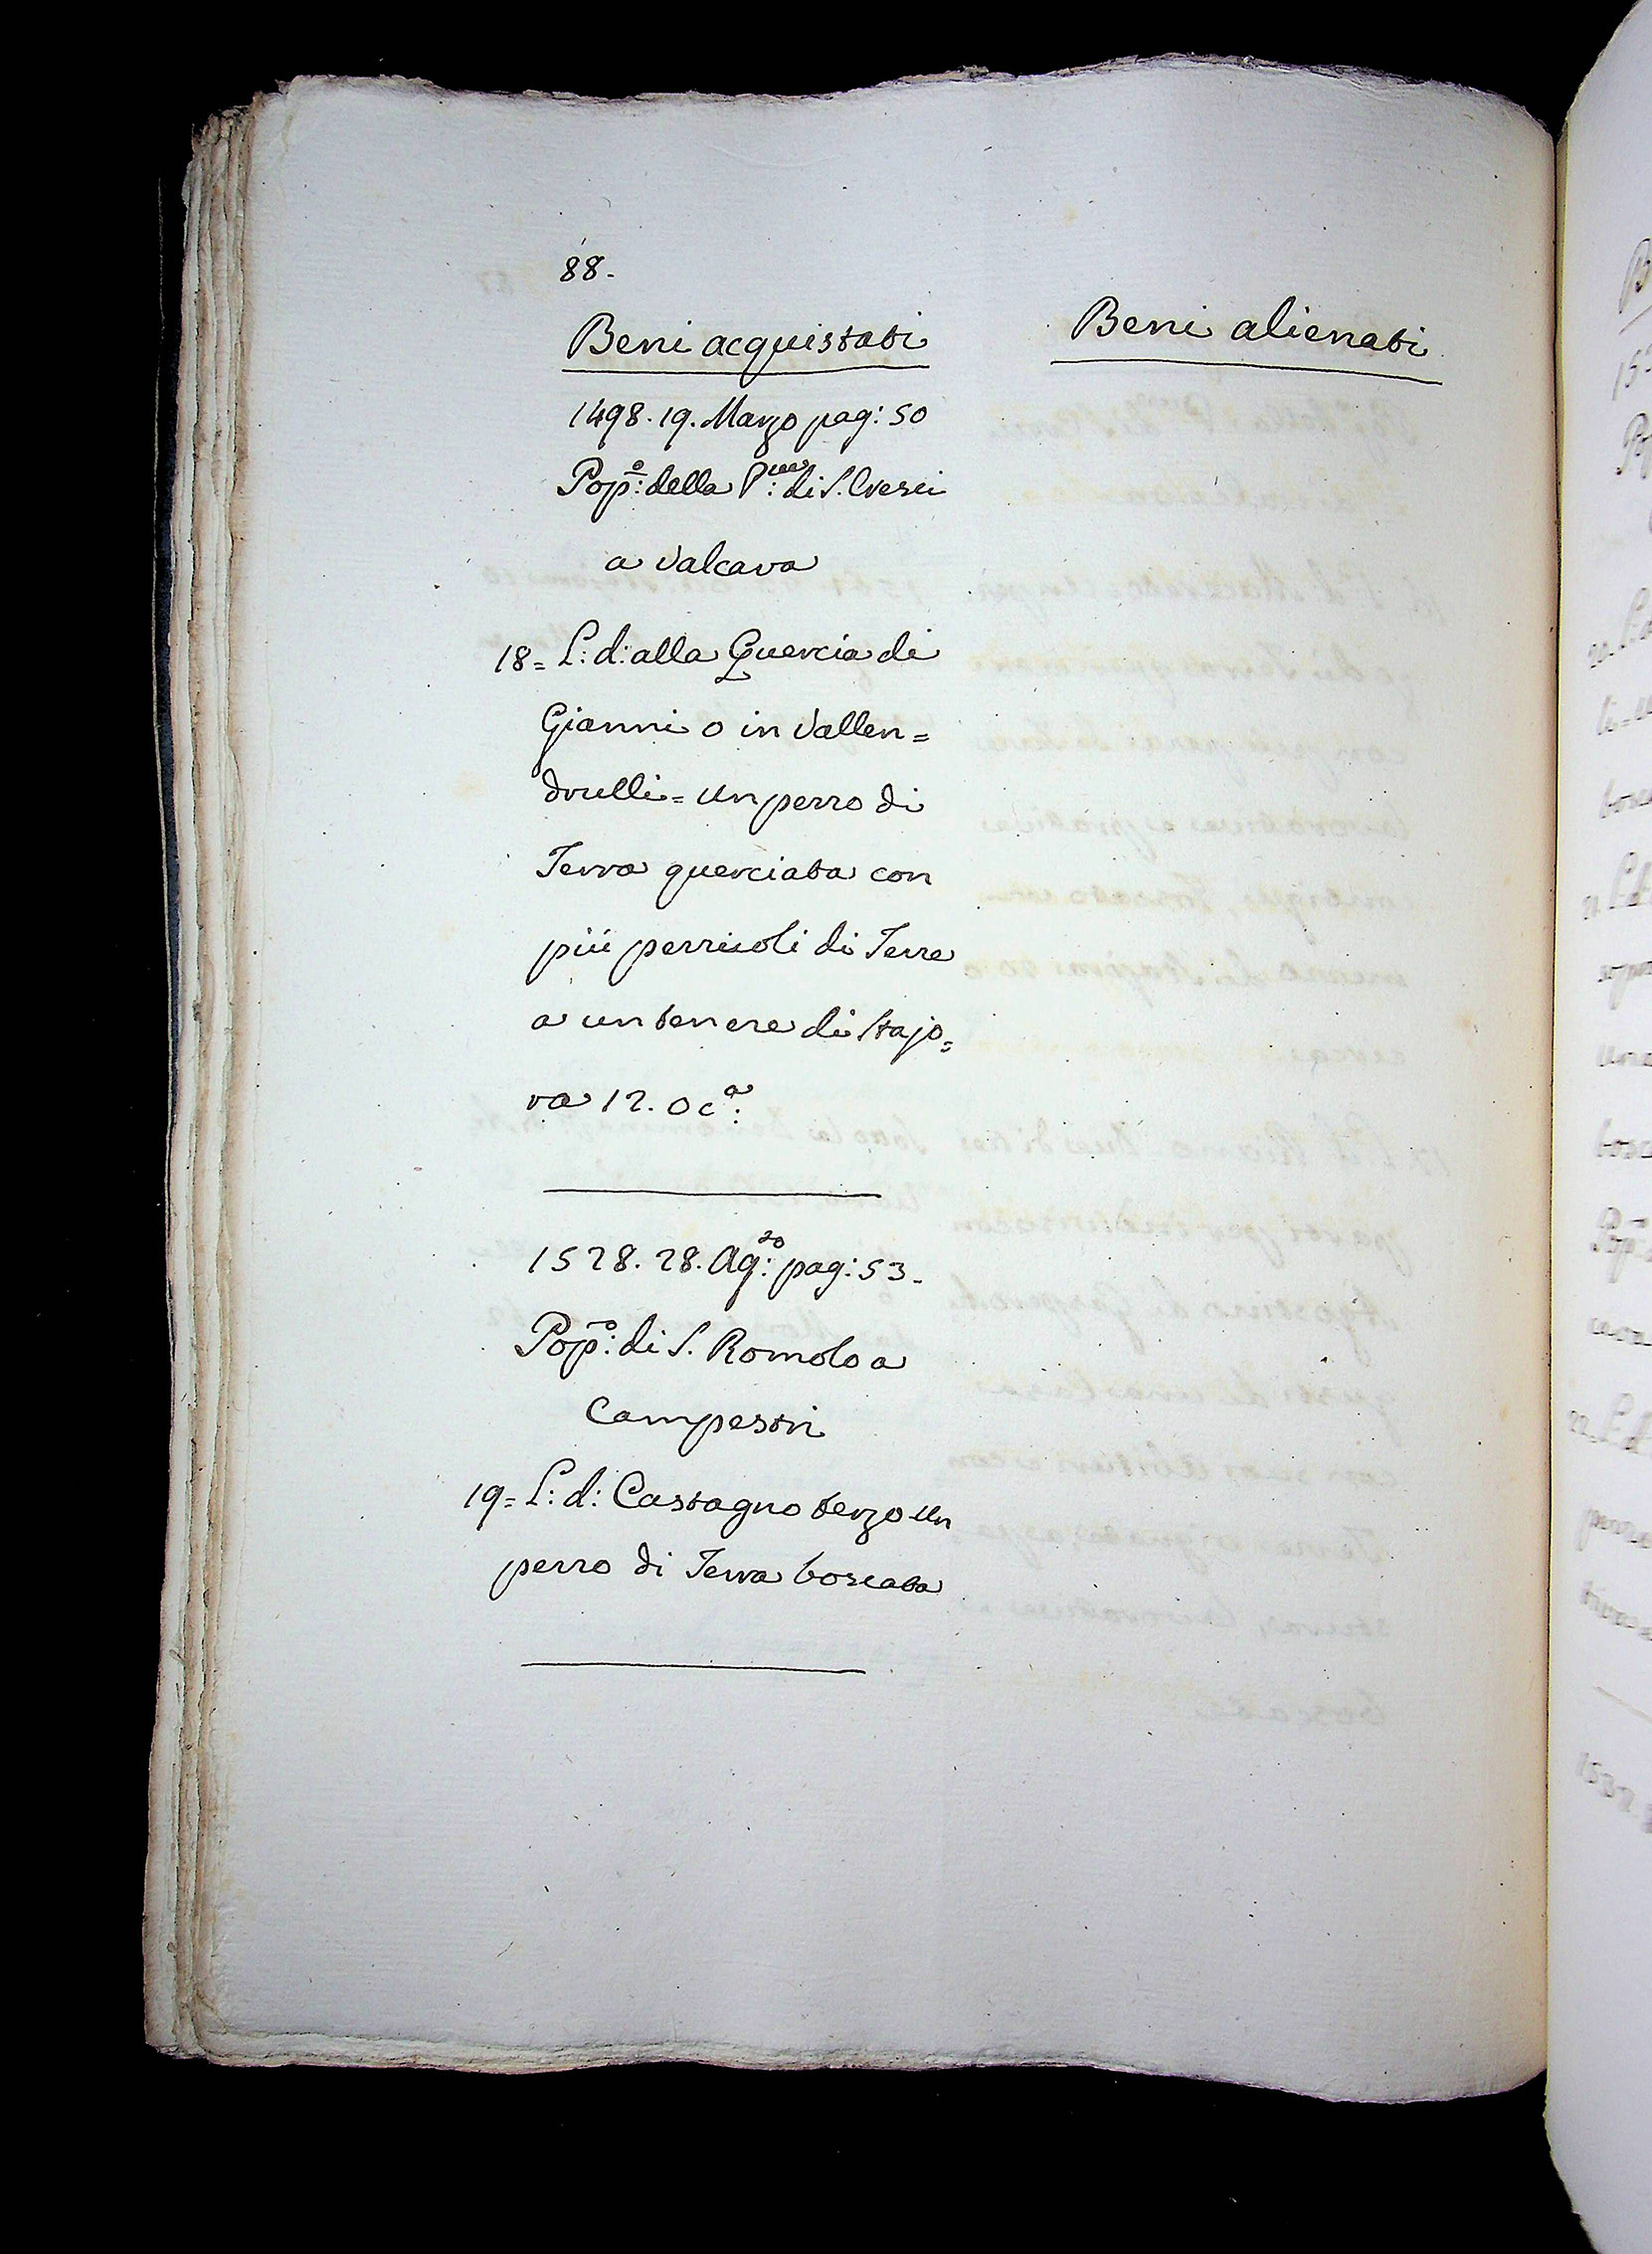 88.
Beni acquistati
Beni alienati
1498. 19. Marzo pag: 50
Pop:º della P:ve di S. Cresci
a Valcava
18= L: d: alla Quercia di
Gianni o in Vallen=
drelli= un pezzo di
Terra querciata con
più pezzuoli di Terre
a un tenere di Stajo=
ra 12. o c:ª
1528. 28. Ag:to pag: 53.
Pop:º di S. Romolo a
Campestri
19= L: d: Castagno terzo un
pezzo di Terra boscata